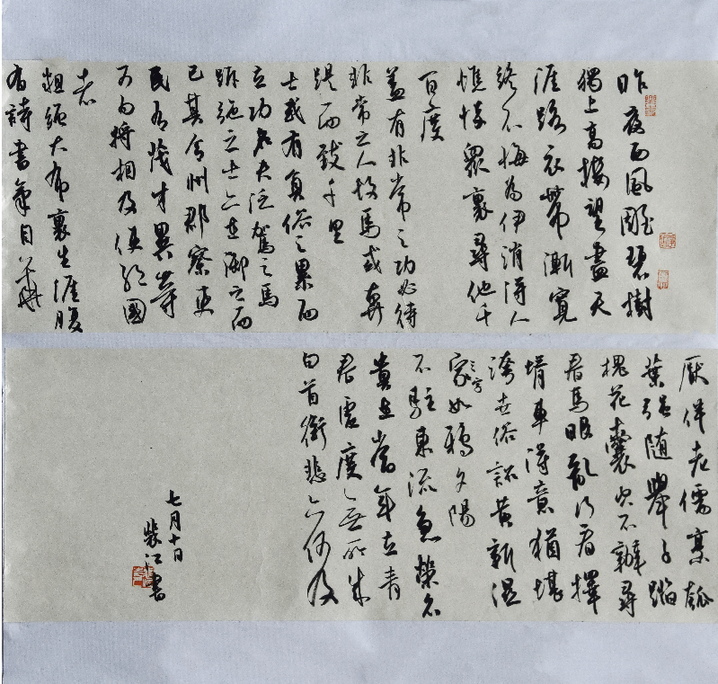 昨夜西風雕碧樹
獨上高樓望盡天
涯路衣帶漸寬
終不悔為伊消得人
憔悴眾裏尋他千
百度
蓋有非常之功必待
非常之人故馬或奔
踶而致千里
士或有負俗之累而
立功名夫泛駕之馬
跅弛之士亦在御之而
已其令州郡察吏
民有茂才異等
可為將相及使絕國
者
粗繒大布裹生涯腹
有詩書氣自華
厭伴老儒烹瓠
葉強隨舉子踏
槐花囊空不辦尋
春馬眼亂行看擇
婿車得意猶堪
誇世俗詔黃新濕
字如鴉夕陽
不駐東流急榮名
貴在當年立青
春虛度無所成
白首銜悲亦何及
七月十日
江書